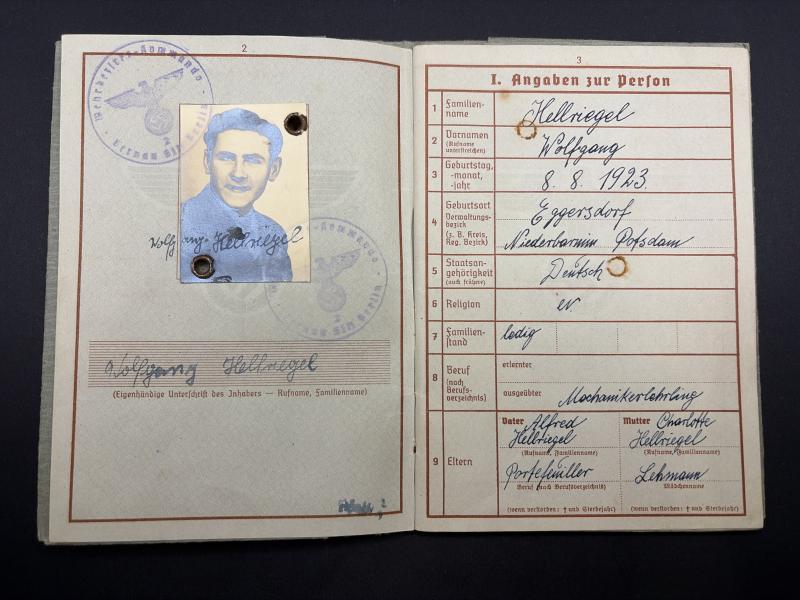 2
Wehrbezirks-Kommando
2
Wolfgang Hellriegel
Kommando
2
Berlin
Wolfgang Hellriegel
(Eigenhändige Unterschrift des Inhabers — Rufname, Familienname)
3
I. Angaben zur Person
1 Familien-
name
Hellriegel
2 Vornamen
(Rufname
unterstreichen)
Wolfgang
3 Geburtstag,
-monat,
-jahr
8. 8. 1923.
4 Geburtsort
Verwaltungs-
bezirk
(z. B. Kreis,
Reg. Bezirk)
Eggersdorf
Niederbarnim Potsdam
5 Staatsan-
gehörigkeit
(auch frühere)
Deutsch
6 Religion
ev.
7 Familien-
stand
ledig
8 Beruf
(nach
Berufs-
verzeichnis)
erlernter
ausgeübter Mechanikerlehrling
9 Eltern
Vater Alfred
Hellriegel
(Rufname, Familienname)
Portefeuiller
Beruf (nach Berufsverzeichnis)
(wenn verstorben: † und Sterbejahr)
Mutter Charlotte
Hellriegel
(Rufname, Familienname)
Lehmann
Mädchenname
(wenn verstorben: † und Sterbejahr)